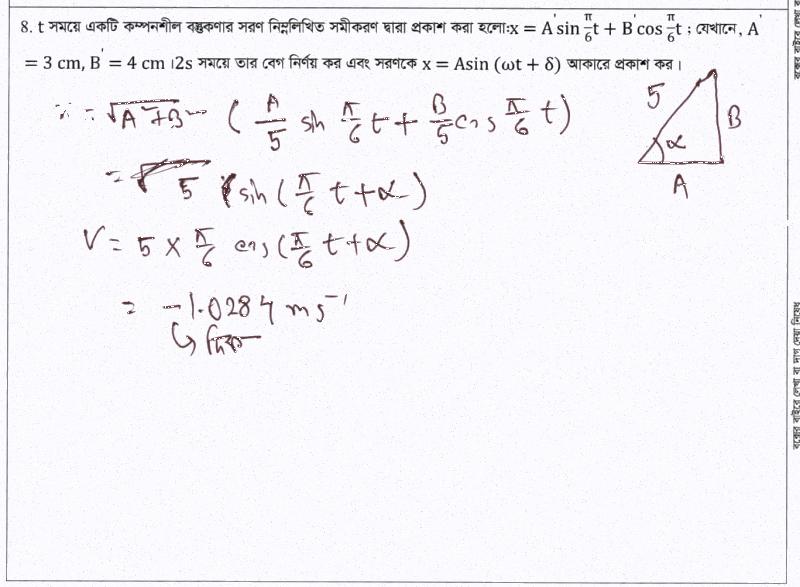 8. t সময়ে একটি কম্পনশীল বস্তুকণার সরণ নিম্নলিখিত সমীকরণ দ্বারা প্রকাশ করা হলোঃx = A'sin π/6 t + B'cos π/6 t ; যেখানে, A'
= 3 cm, B' = 4 cm ।2s সময়ে তার বেগ নির্ণয় কর এবং সরণকে x = Asin (ωt + δ) আকারে প্রকাশ কর।
= √A²+B² ( A/5 sin π/6 t + B/5 cos π/6 t )
5
B
α
A
= 5 sin ( π/6 t + α )
V = 5 × π/6 cos ( π/6 t + α )
= -1.0284 ms⁻¹
↳ দিক